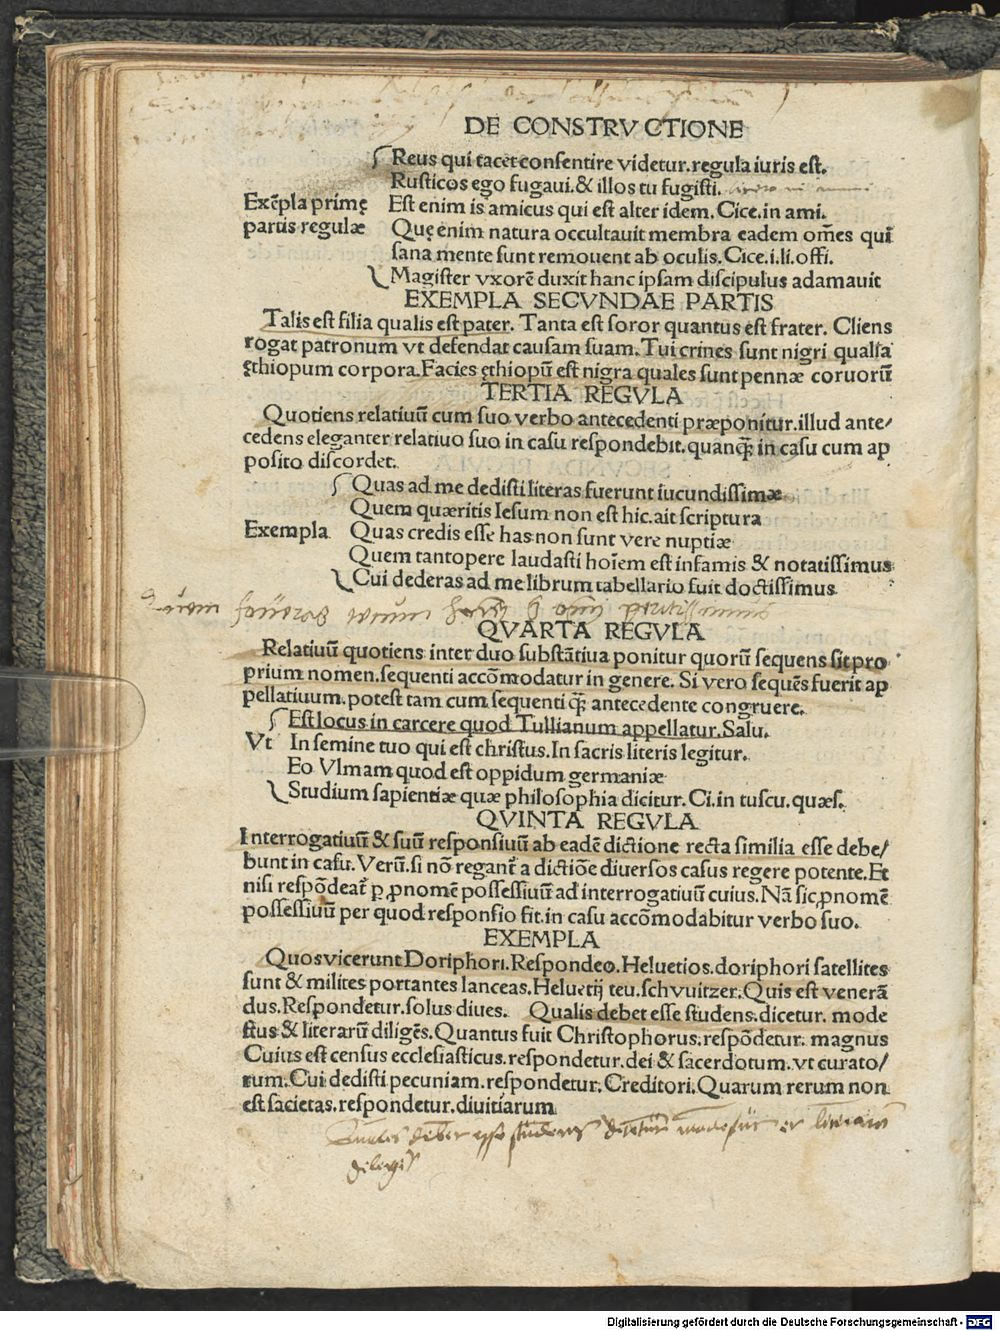 DE CONSTRVCTIONE
Reus qui tacet consentire videtur. regula iuris est.
Rusticos ego fugaui. & illos tu fugisti.
Exēpla primę Est enim is amicus qui est alter idem. Cice. in ami.
partis regulæ Quę enim natura occultauit membra eadem om̄es qui
sana mente sunt remouent ab oculis. Cice. i. li. offi.
Magister vxorē duxit hanc ipsam discipulus adamauit
EXEMPLA SECVNDAE PARTIS
Talis est filia qualis est pater. Tanta est soror quantus est frater. Cliens
rogat patronum vt defendat causam suam. Tui crines sunt nigri qualia
ęthiopum corpora. Facies ęthiopū est nigra quales sunt pennæ coruorū
TERTIA REGVLA
Quotiens relatiuū cum suo verbo antecedenti præponitur. illud ante/
cedens eleganter relatiuo suo in casu respondebit. quanq̄; in casu cum ap
posito discordet.
Quas ad me dedisti literas fuerunt iucundissimæ
Quem quæritis Iesum non est hic. ait scriptura
Exempla Quas credis esse has non sunt vere nuptiæ
Quem tantopere laudasti hoīem est infamis & notatissimus
Cui dederas ad me librum tabellario fuit doctissimus
QVARTA REGVLA
Relatiuū quotiens inter duo substātiua ponitur quorū sequens sit pro
prium nomen. sequenti accōmodatur in genere. Si vero sequēs fuerit ap
pellatiuum. potest tam cum sequenti q̄; antecedente congruere.
Est locus in carcere quod Tullianum appellatur. Salu.
Vt In semine tuo qui est christus. In sacris literis legitur.
Eo Vlmam quod est oppidum germaniæ
Studium sapientiæ quæ philosophia dicitur. Ci. in tuscu. quæs.
QVINTA REGVLA
Interrogatiuū & suū responsiuū ab eadē dictione recta similia esse debe/
bunt in casu. Verū. si nō regant̄ a dictiōe diuersos casus regere potente. Et
nisi respōdeat̄ ꝑ ꝓnomē possessiuū ad interrogatiuū cuius. Nā sic ꝓnomē
possessiuū per quod responsio fit. in casu accōmodabitur verbo suo.
EXEMPLA
Quos vicerunt Doriphori. Respondeo. Heluetios. doriphori satellites
sunt & milites portantes lanceas. Heluetij teu. schvuitzer. Quis est venerā
dus. Respondetur. solus diues. Qualis debet esse studens. dicetur. mode
stus & literarū diligēs. Quantus fuit Christophorus. respōdetur. magnus
Cuius est census ecclesiasticus. respondetur. dei & sacerdotum. vt curato/
rum. Cui dedisti pecuniam. respondetur. Creditori. Quarum rerum non
est sacietas. respondetur. divitiarum
Digitalisierung gefördert durch die Deutsche Forschungsgemeinschaft - DFG